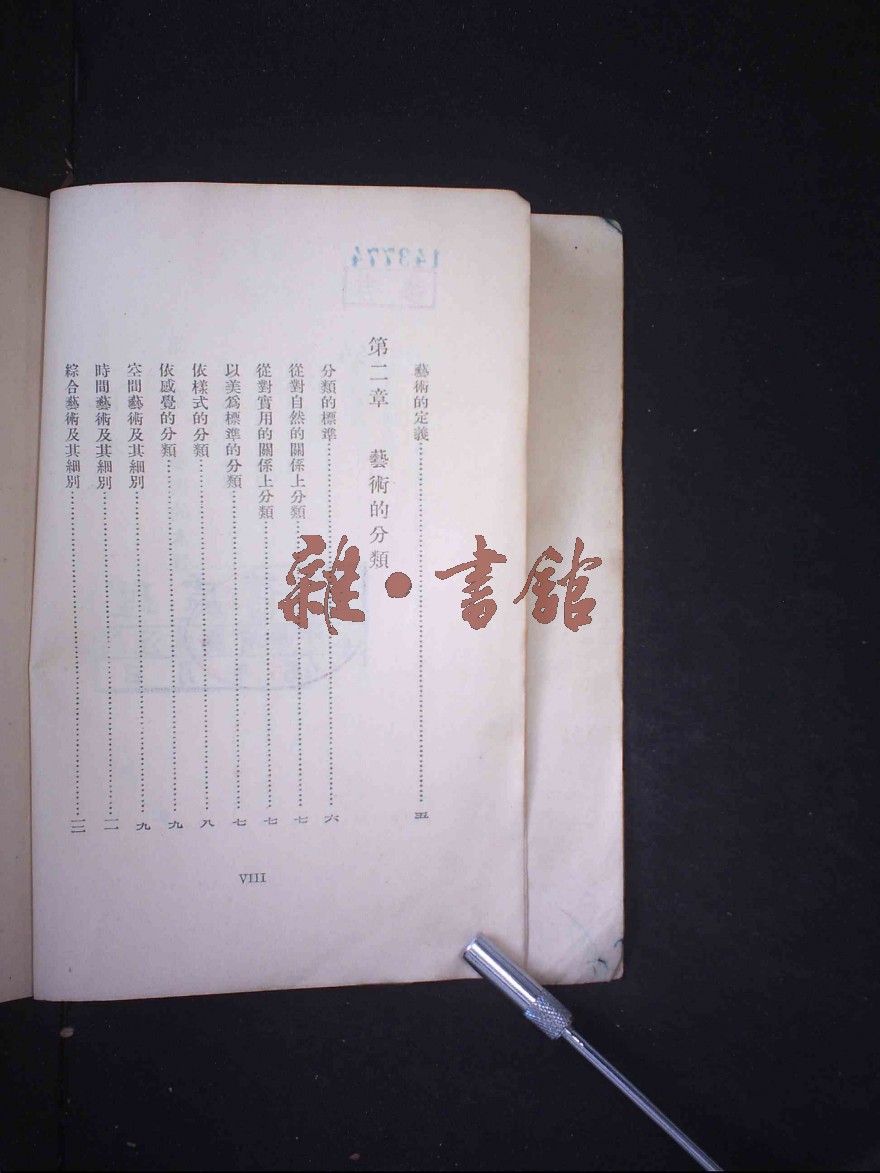 143774
藝術的定義……五
第二章　藝術的分類
分類的標準……六
從對自然的關係上分類……七
從對實用的關係上分類……七
以美爲標準的分類……七
依樣式的分類……八
依感覺的分類……九
空間藝術及其細別……九
時間藝術及其細別……一一
綜合藝術及其細別……一二
VIII
雜・書館